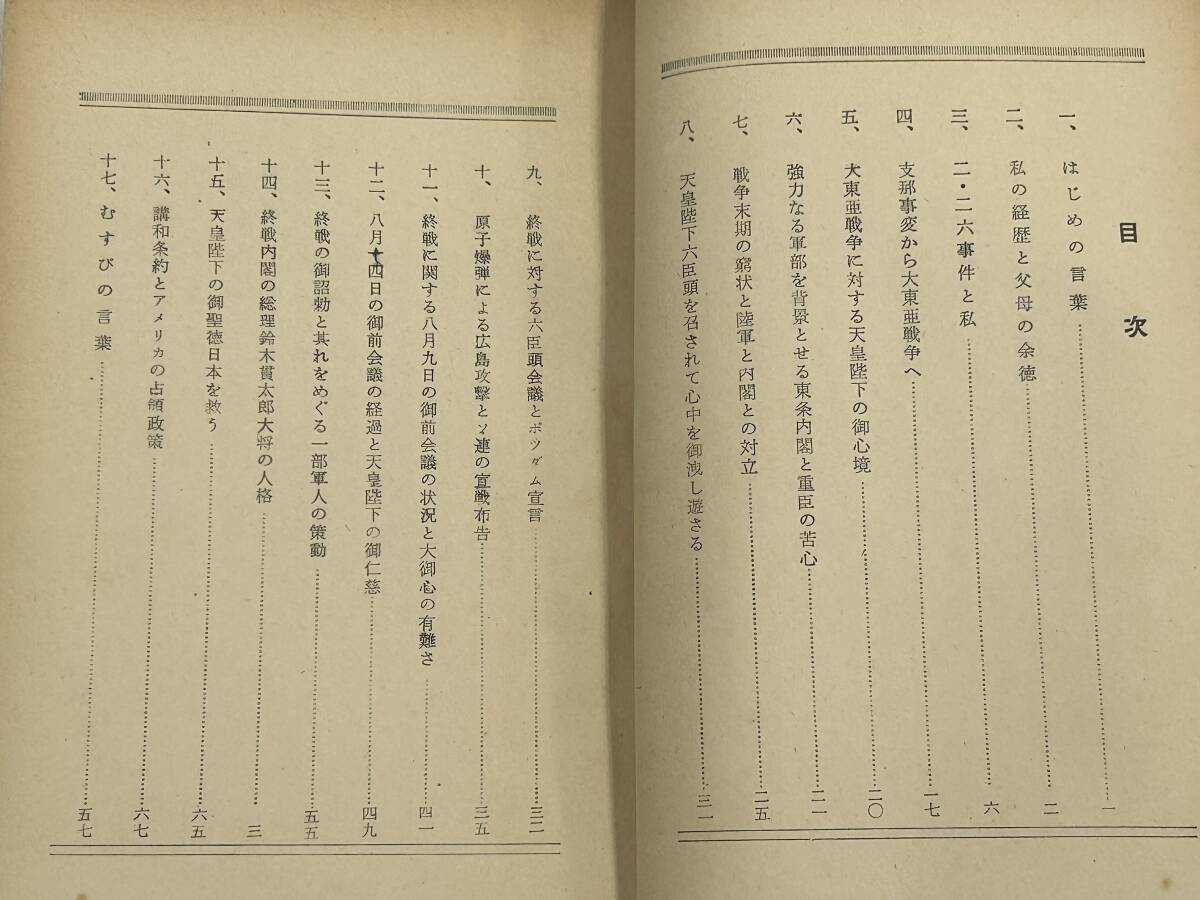 目次
一、はじめの言葉……一
二、私の経歴と父母の余徳……二
三、二・二六事件と私……六
四、支那事変から大東亜戦争へ……一七
五、大東亜戦争に対する天皇陛下の御心境……二〇
六、強力なる軍部を背景とせる東条内閣と重臣の苦心……二一
七、戦争末期の窮状と陸軍と内閣との対立……二五
八、天皇陛下六臣頭を召されて心中を御洩し遊さる……三一
九、終戦に対する六臣頭会議とポツダム宣言……三二
十、原子爆弾による広島攻撃とソ連の宣戦布告……三五
十一、終戦に関する八月九日の御前会議の状況と大御心の有難さ……四一
十二、八月十四日の御前会議の経過と天皇陛下の御仁慈……四九
十三、終戦の御詔勅と其れをめぐる一部軍人の策動……五五
十四、終戦内閣の総理鈴木貫太郎大将の人格……三
十五、天皇陛下の御聖徳日本を救う……六五
十六、講和条約とアメリカの占領政策……六七
十七、むすびの言葉……五七